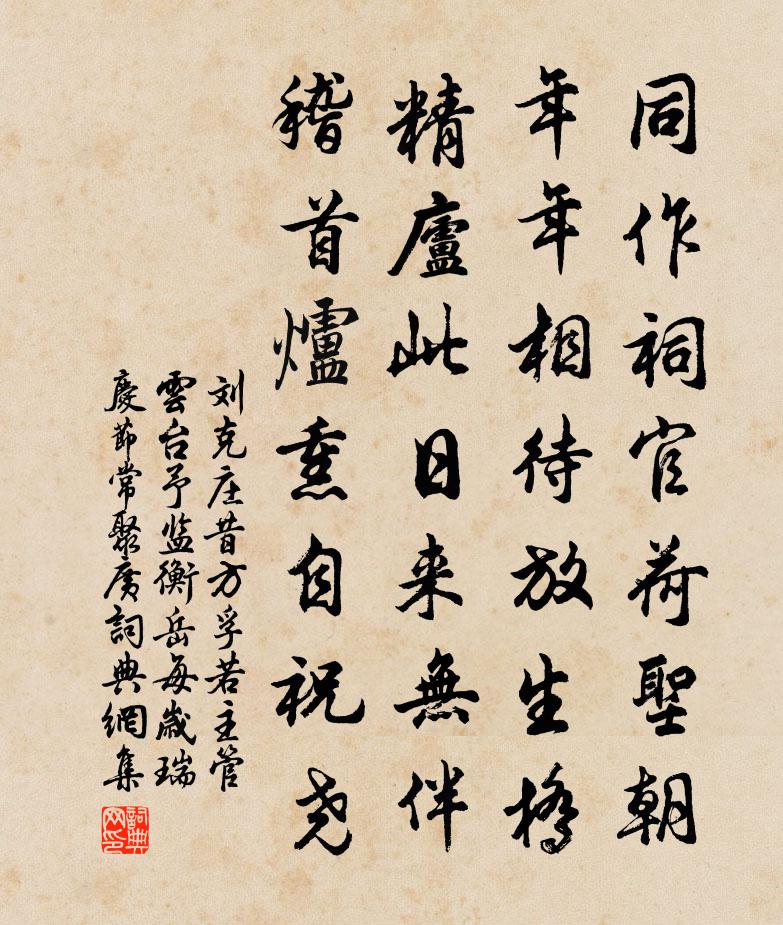 同作祠官荷聖朝
年年相待放生橋
精廬此日来無伴
稽首爐熏自祝尧
刘克庄昔方孚若主管
雲台予监衡岳每歲瑞
慶節常聚廣詞典網集
詞典网印